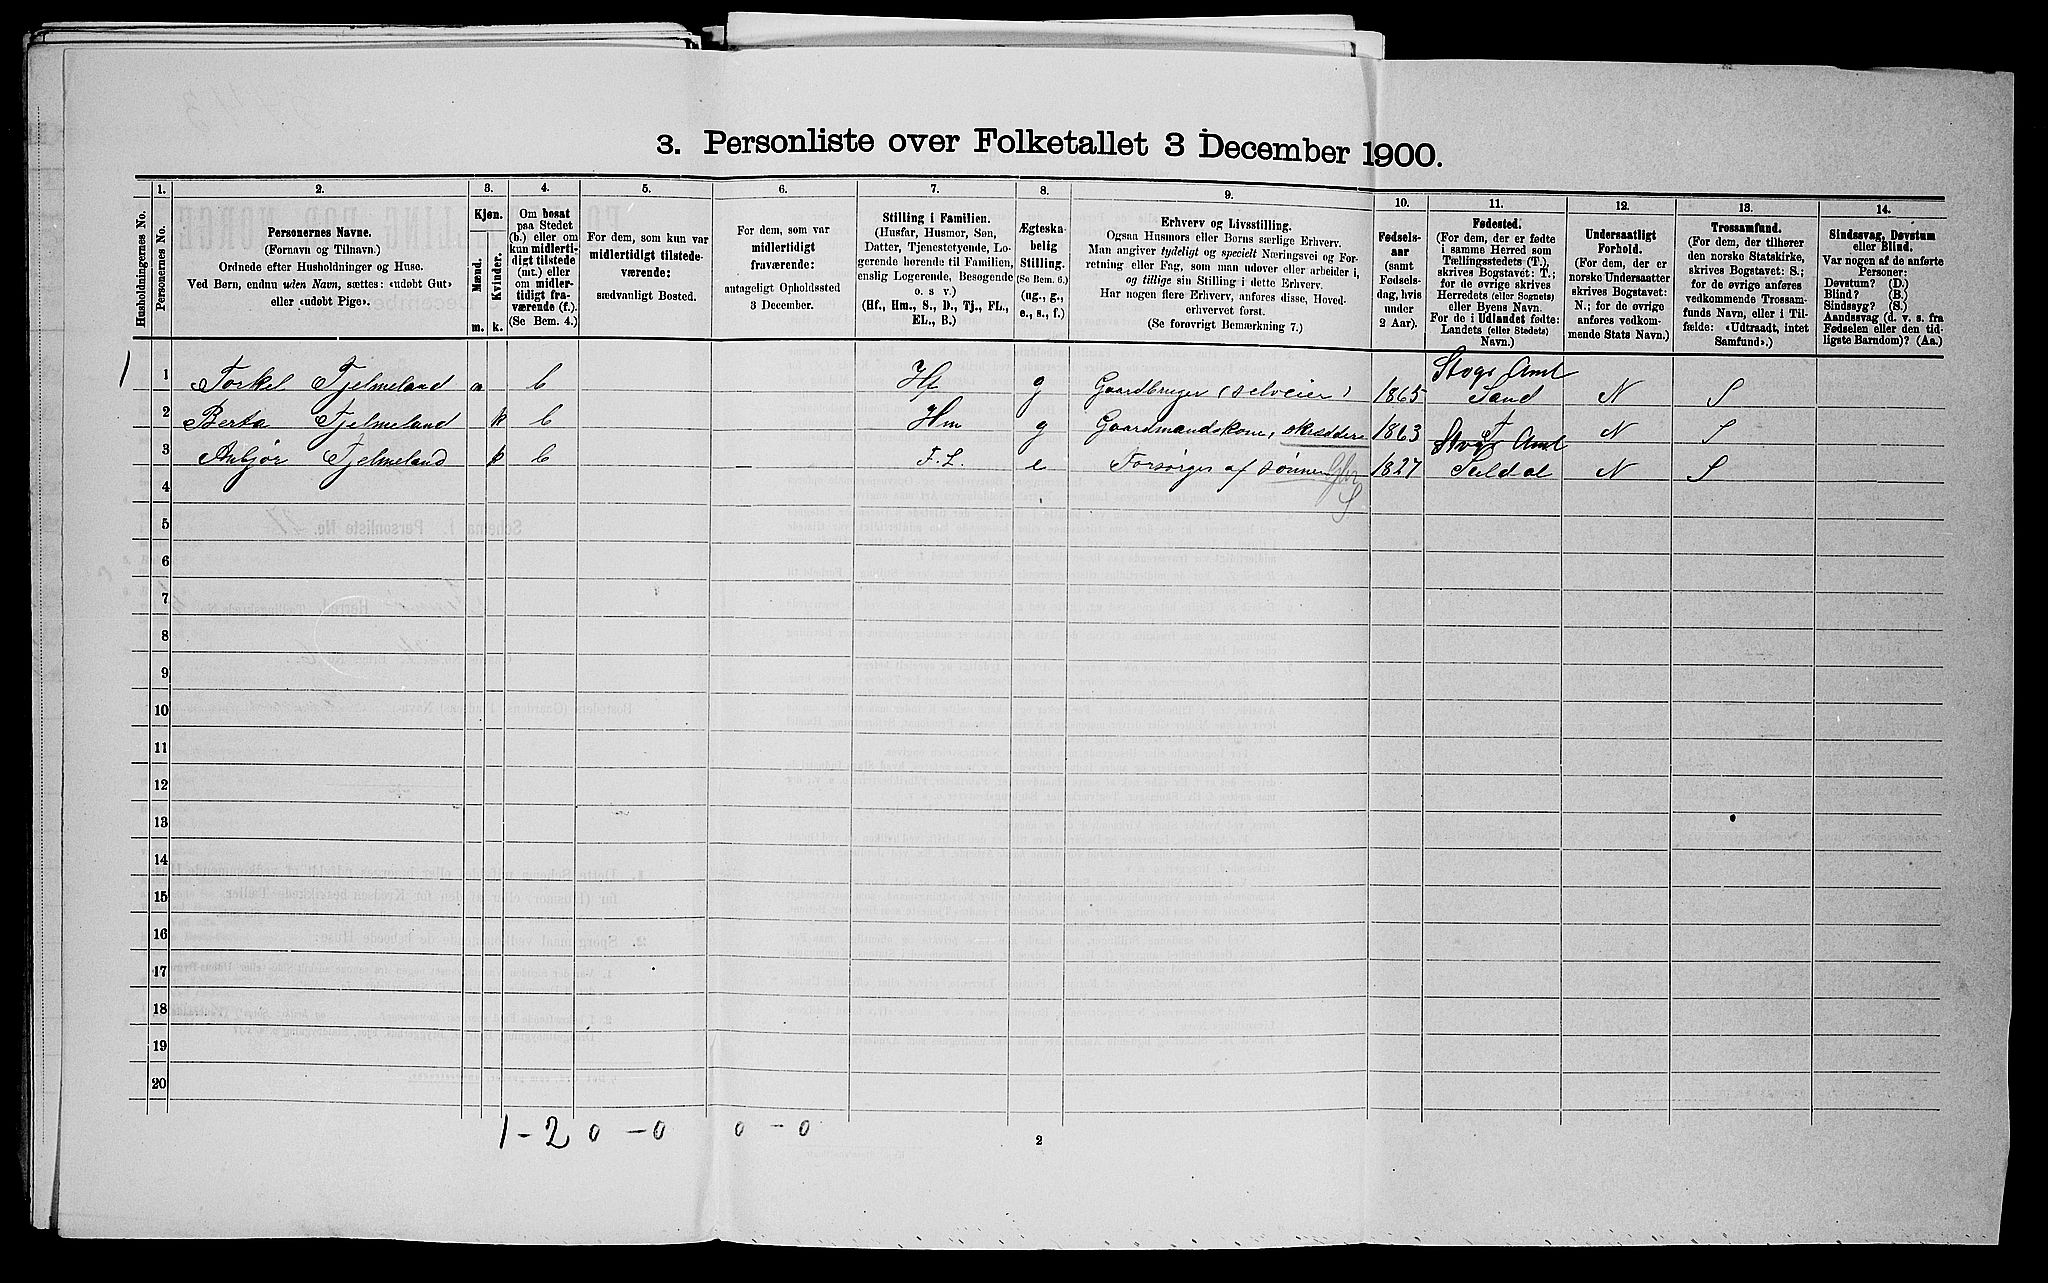 3. Personliste over Folketallet 3 December 1900.
1. 2. 3. 4. 5. 6. 7. 8. 9. 10. 11. 12. 13. 14.
Husholdningernes No.
Personernes No.
Personernes Navne.
(Fornavn og Tilnavn.)
Ordnede efter Husholdninger og Huse.
Ved Børn, endnu uden Navn, sættes: «udøbt Gut»
eller «udøbt Pige».
Kjøn.
Mænd.
Kvinder.
m. k.
Om bosat
paa Stedet
(b.) eller om
kun midlerti-
digt tilstede
(mt.) eller
om midler-
tidigt fra-
værende (f.).
(Se Bem. 4.)
For dem, som kun var
midlertidigt tilstede-
værende:
sædvanligt Bosted.
For dem, som var
midlertidigt
fraværende:
antageligt Opholdssted
3 December.
Stilling i Familien.
(Husfar, Husmor, Søn,
Datter, Tjenestetyende, Lo-
gerende hørende til Familien,
enslig Logerende, Besøgende
o. s. v.)
(Hf., Hm., S., D., Tj., FL.,
EL., B.)
Ægteska-
belig
Stilling.
(Se Bem. 6.)
(ug., g.,
e., s., f.)
Erhverv og Livsstilling.
Ogsaa Husmors eller Børns særlige Erhverv.
Man angiver tydeligt og specielt Næringsvei og For-
retning eller Fag, som man udøver eller arbeider i,
og tillige sin Stilling i dette Erhverv.
Har nogen flere Erhverv, anføres disse, Hoved-
erhvervet først.
(Se forøvrigt Bemærkning 7.)
Fødsels-
aar
(samt
Fødsels-
dag, hvis
under
2 Aar).
Fødested.
(For dem, der er fødte
i samme Herred som
Tællingsstedets (T.),
skrives Bogstavet: T.;
for de øvrige skrives
Herredets (eller Sognets)
eller Byens Navn.
For de i Udlandet fødte:
Landets (eller Stedets)
Navn.)
Undersaatligt
Forhold.
(For dem, der er
norske Undersaatter
skrives Bogstavet:
N.; for de øvrige
anføres vedkom-
mende Stats Navn.)
Trossamfund.
(For dem, der tilhører
den norske Statskirke,
skrives Bogstavet: S.;
for de øvrige anføres
vedkommende Trossam-
funds Navn, eller i Til-
fælde: «Udtraadt, intet
Samfund».)
Sindssvag, Døvstum
eller Blind.
Var nogen af de anførte
Personer:
Døvstum? (D.)
Blind? (B.)
Sindssyg? (S.)
Aandssvag (d. v. s. fra
Fødselen eller den tid-
ligste Barndom)? (Aa.)
Stvgr Amt
1 1 Torkel Tjelmeland m b Hf g Gaardbruger (selveier) 1865 Sand N S
2 Berta Tjelmeland k b Hm g Gaardmandskone, skrædder 1863 T N S
Stvgr Amt
3 Anbjør Tjelmeland k b F.L. e Forsørges af sønnen Gbr 1827 Suldal N S
S
4
5
6
7
8
9
10
11
12
13
14
15
16
17
18
19
20
1-2 0-0 0-0
2